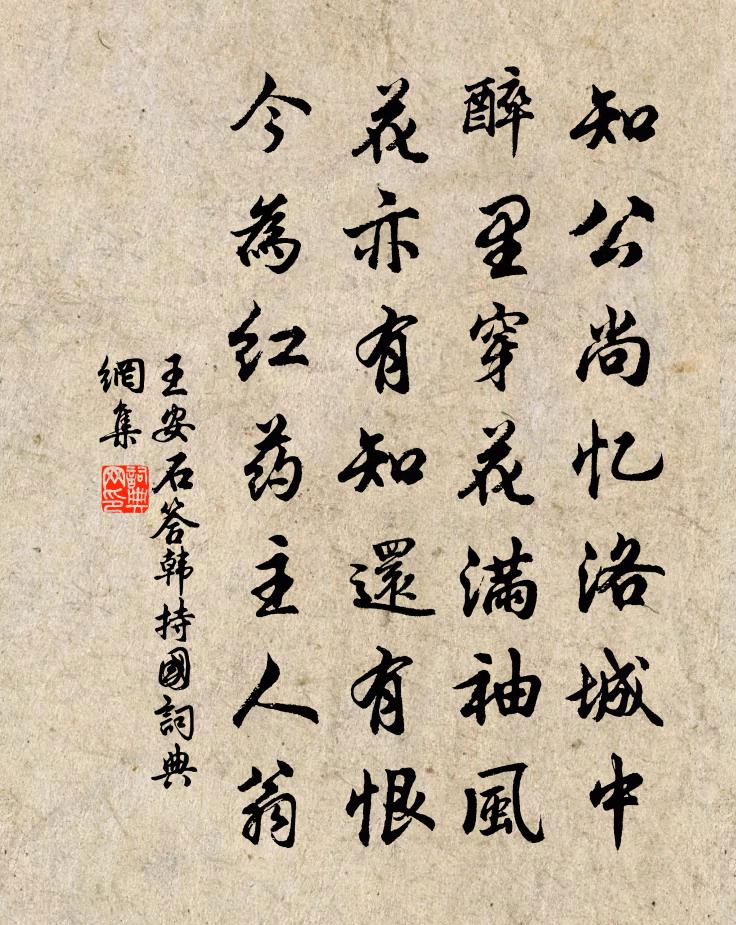 知公尚忆洛城中
醉里穿花满袖風
花亦有知還有恨
今為红药主人翁
王安石答韩持國詞典
網集
詞典
网印